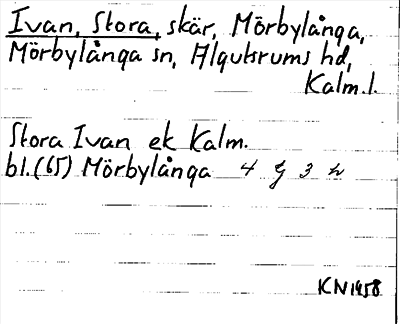 Ivan, Stora, skär, Mörbylånga,
Mörbylånga sn, Algutsrums hd,
Kalm. l.
Stora Ivan ek Kalm.
bl. (65) Mörbylånga 4 g 3 h
KN 1958